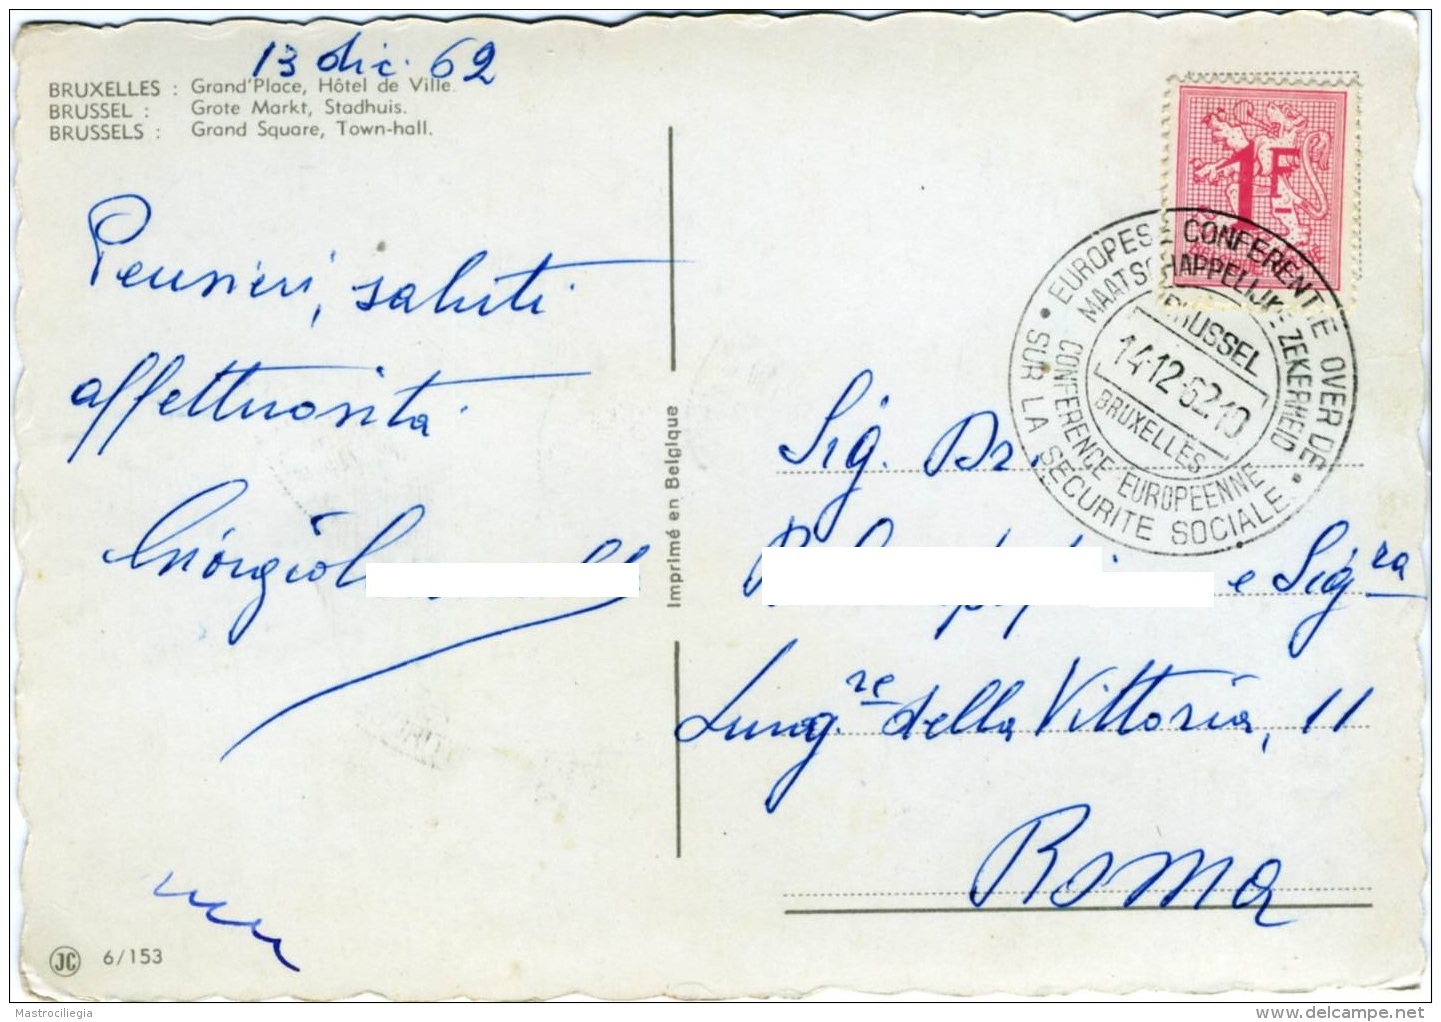 13 dic. 62
BRUXELLES : Grand'Place, Hôtel de Ville.
BRUSSEL : Grote Markt, Stadhuis.
BRUSSELS : Grand Square, Town-hall.
Pensieri, saluti
affettuosità
Giorgio
JC 6/153
Imprimé en Belgique
1F
EUROPESE CONFERENTIE OVER DE
MAATSCHAPPELIJKE ZEKERHEID
BRUSSEL
14-12-62.10
BRUXELLES
CONFERENCE EUROPEENNE
SUR LA SECURITE SOCIALE
Sig. Dr.
e Sig.ra
Lung.re della Vittoria, 11
Roma
Mastrociliegia
delcampe.net